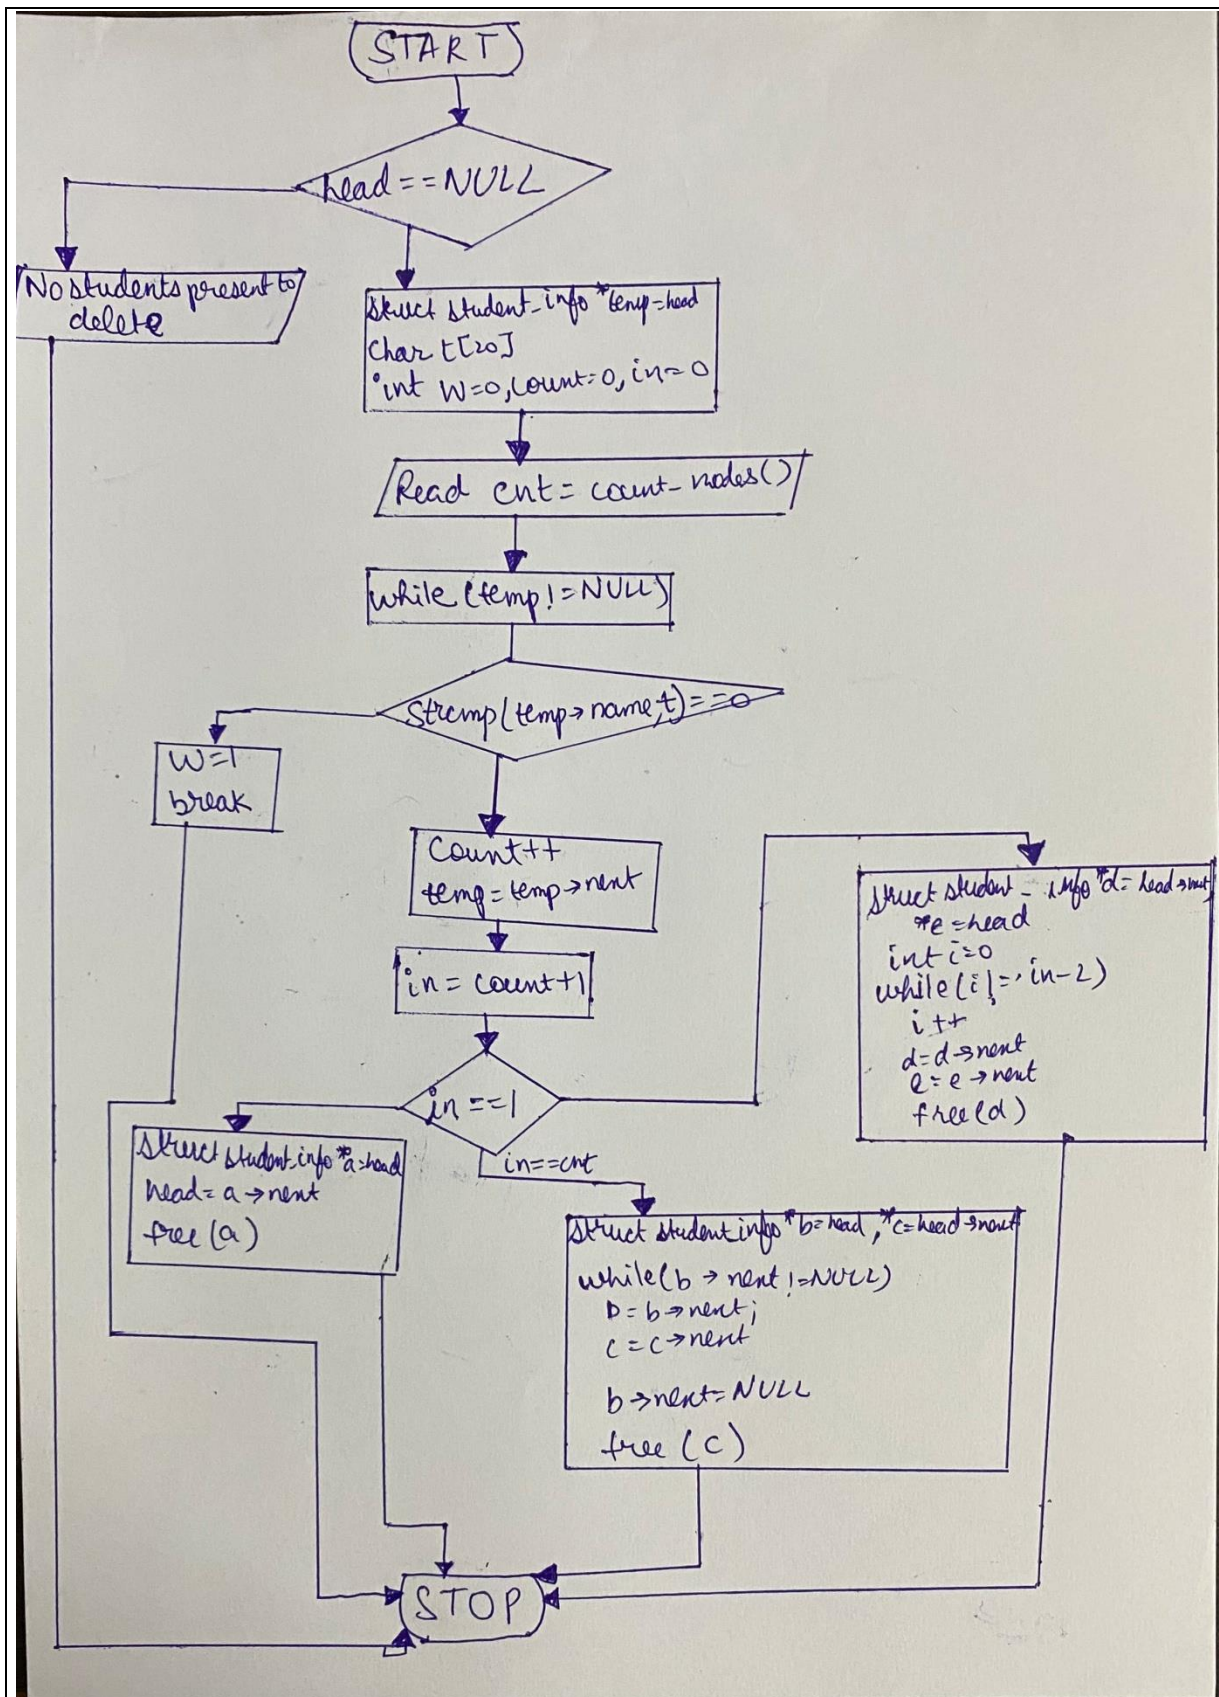 START
head==NULL
No students present to
delete
struct student_info *temp=head
Char t[20]
int W=0, count=0, in=0
Read cnt= count_nodes()
while (temp!=NULL)
Strcmp(temp→name,t)==0
W=1
break
Count++
temp=temp→next
in= count+1
in==1
in==cnt
struct student_info *a=head
head= a→next
free(a)
struct student_info *d= head→next
*e=head
int i=0
while(i!= in-2)
i++
d=d→next
e=e→next
free(d)
struct student info *b=head, *c=head→next
while(b→next!=NULL)
b=b→next;
c=c→next
b→next=NULL
free(c)
STOP